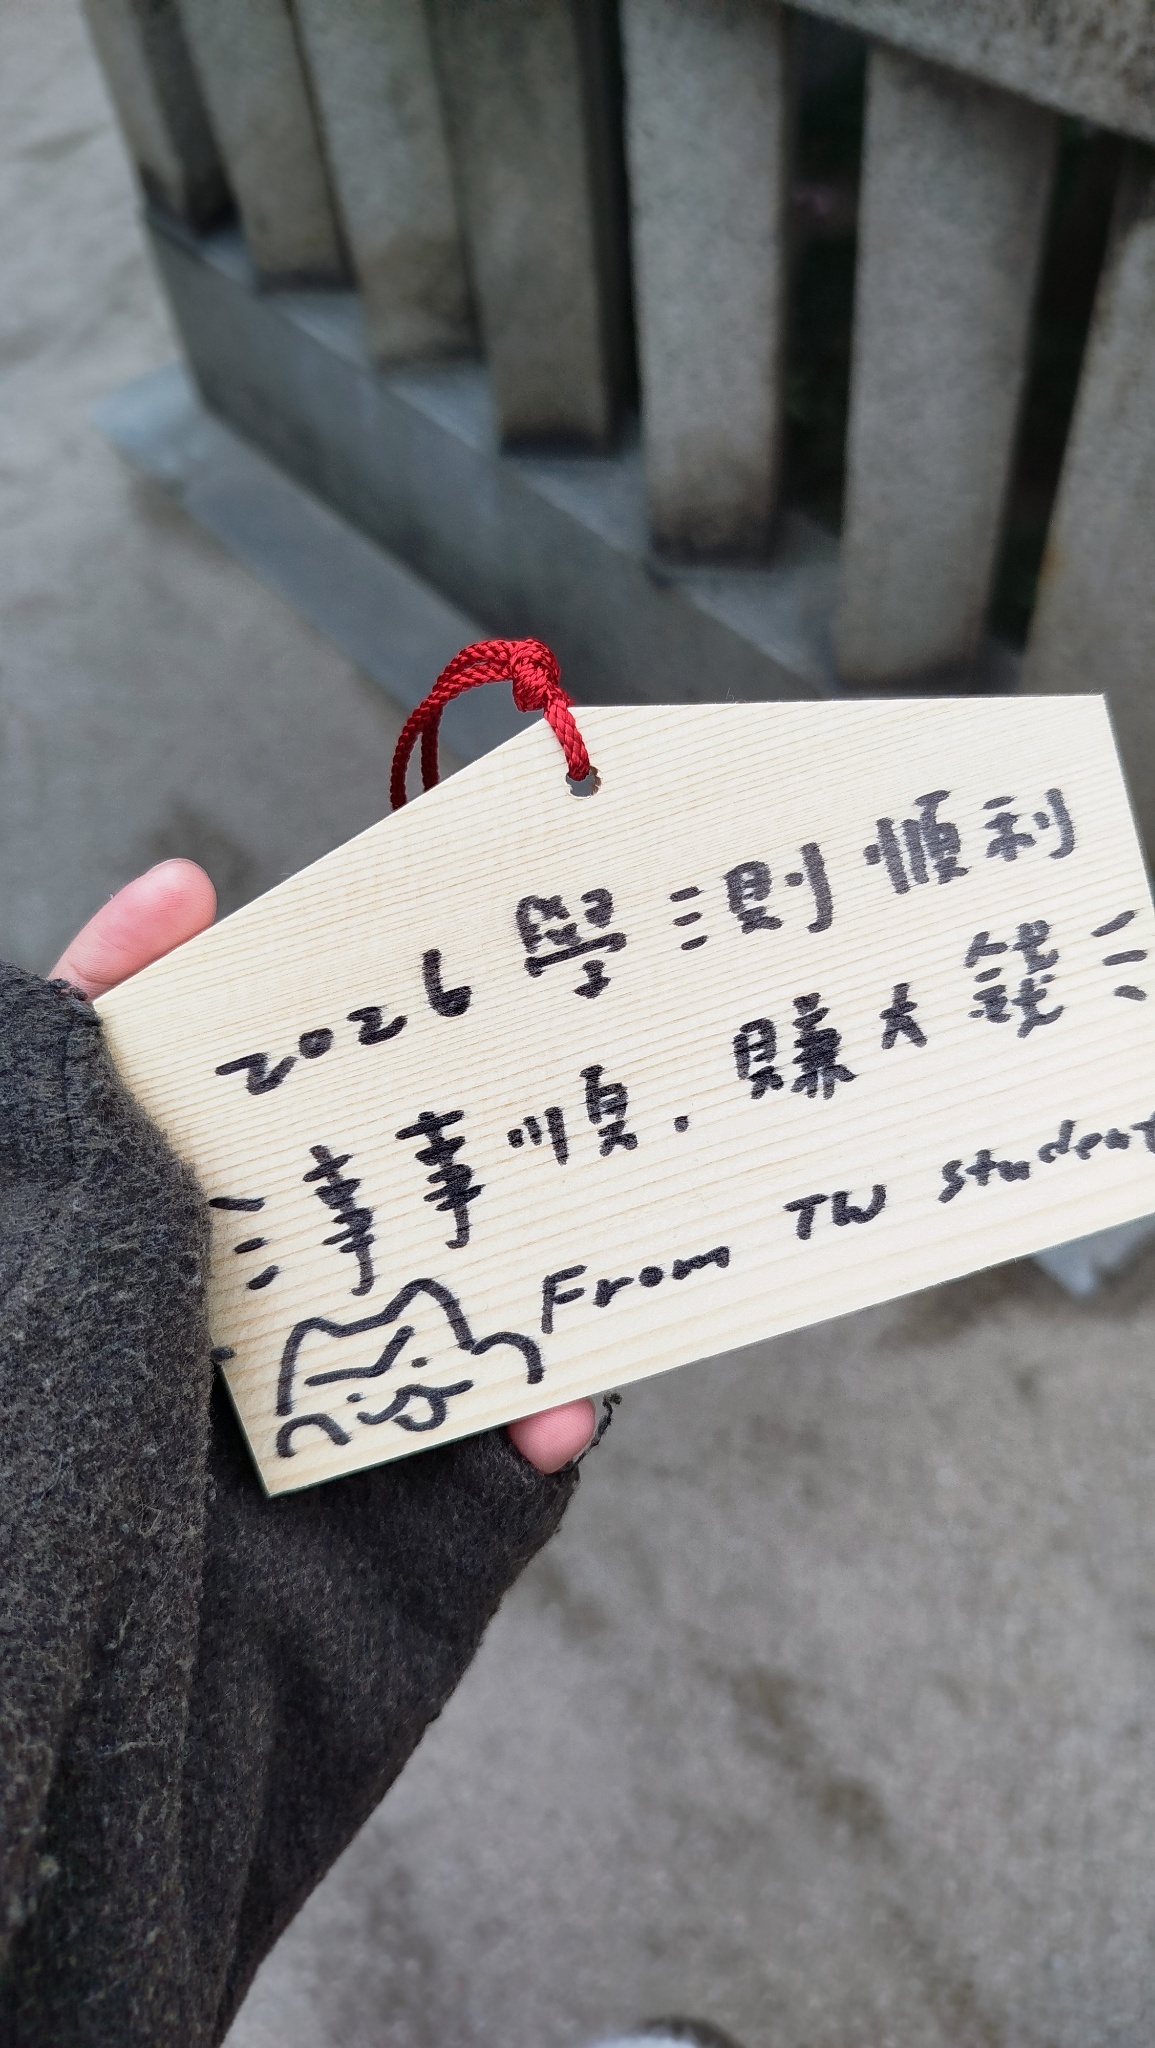 2026 學測順利
事事順.賺大錢
From TW student